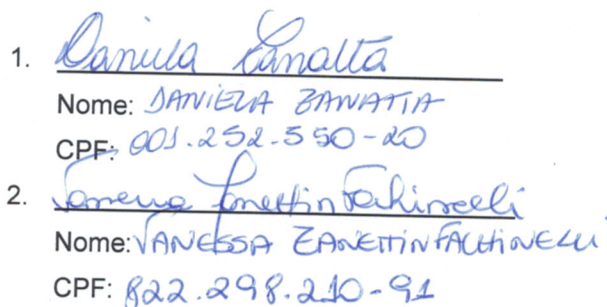 1. Daniela Zanatta
Nome: DANIELA ZANATTA
CPF: 001.252.550-20
2. Vanessa Zanettin Fachinelli
Nome: VANESSA ZANETTIN FACHINELLI
CPF: 822.298.210-91